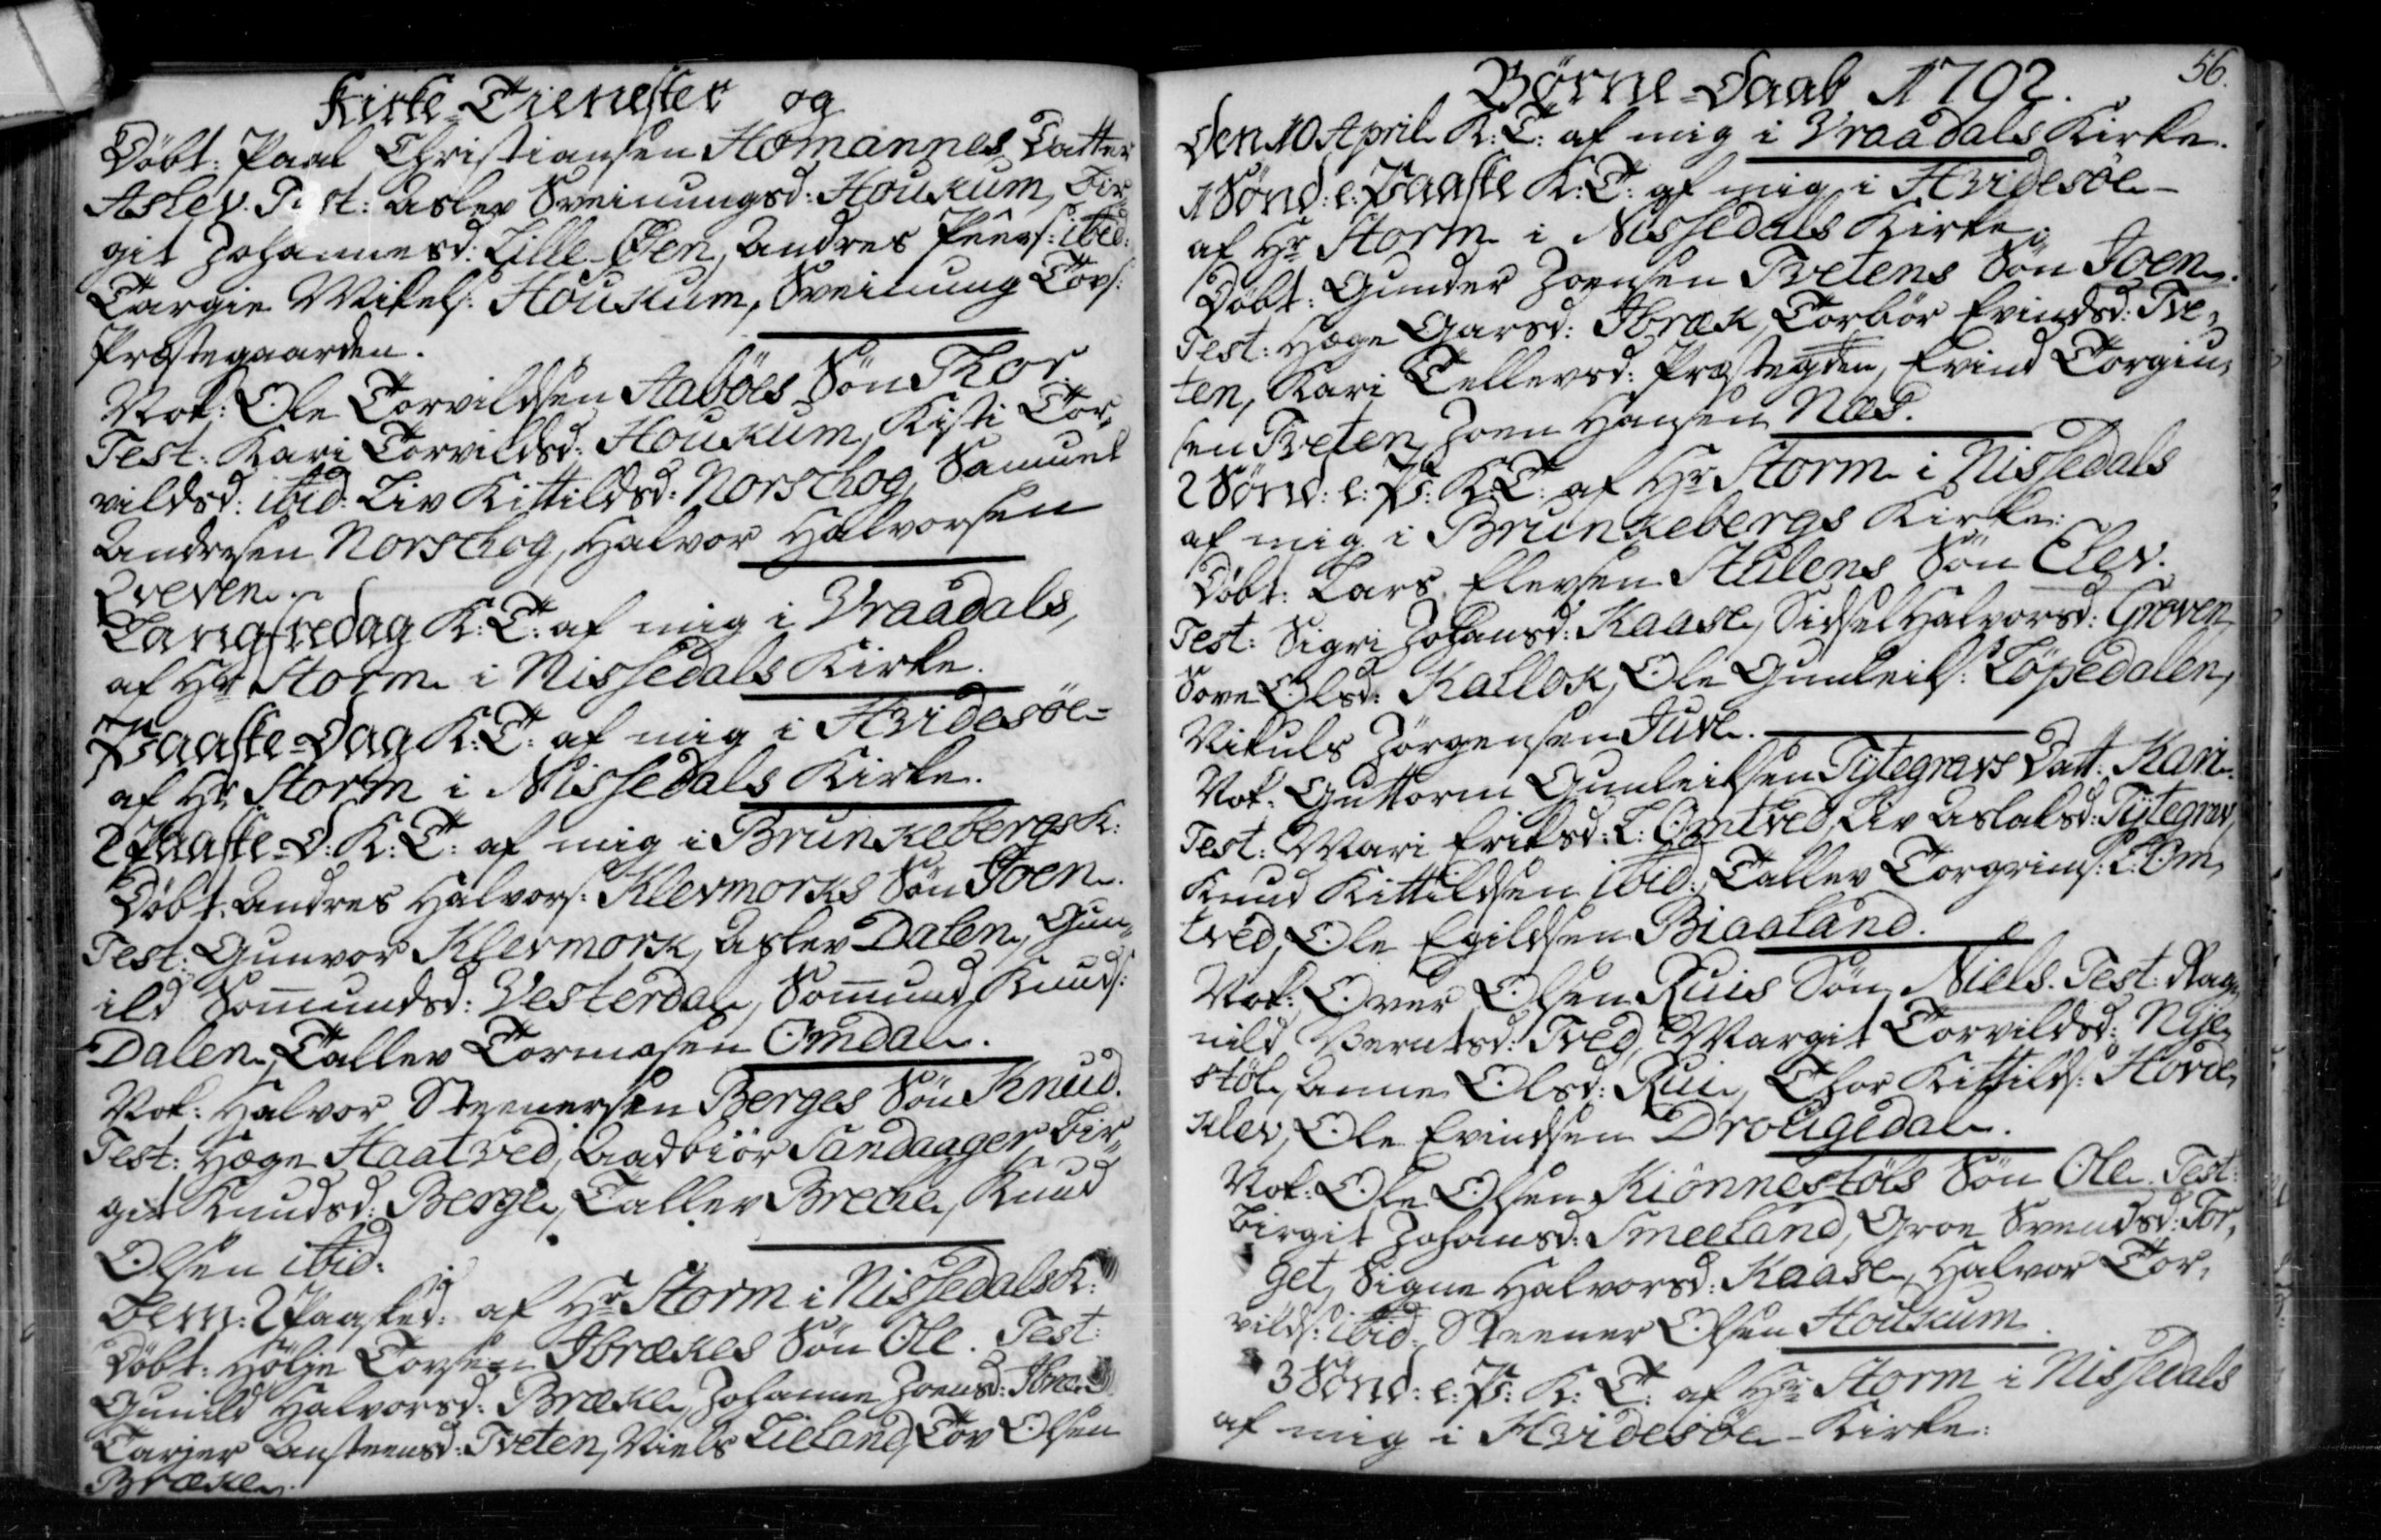 Kirke-Tienester og
Döbt: Paal Christiansen Homannes Datter
Aslev. Test: Aslev Sveinungsd: Houkum, Bir-
git Johannesd: Lille-Öen, Andres Peers: ibid:
Targie Mikels: Houkum, Sveinung Tovs:
Præstegaarden.
Nok: Ole Torvildsen Aaböes Sön Thor.
Test: Kari Torvildsd: Houkum, Kisti Tor-
vildsd: ibid: Liv Kittildsd: Norschog, Samuel
Andresen Norschog, Halvor Halvorsen
Qveven.
Langfredag K: T: af mig i Vraadals,
af Hr Storm i Nissedals Kirke.
Paaske-Dag K: T: af mig i Hvidesöe-
af Hr Storm i Nissedals Kirke.
2 Paaske-D: K: T: af mig i Brunkebergs K:
Döbt: Andres Halvors: Klevmorks Sön Joen.
Test: Gunvor Klevmork, Aslev Dalen, Gun-
ild Som̅undsd: Vesterdal, Som̅und Knuds:
Dalen, Tallev Tormosen Omdal.
Nok: Halvor Steenersen Berges Sön Knud.
Test: Hæge Haatved, Aadbiör Sandaager, Bir-
git Knudsd: Berge, Tallev Breche, Knud
Olsen ibid.
Dem: 2 Paasked: af Hr Storm i Nissedals K:
Döbt: Hölje Tovsen Ibrækes Sön Ole. Test:
Gunild Halvorsd: Bræke, Johanne Joensd: Ibræk
Tarjer Ansteensd: Tveten, Niels Lieland, Tov Olsen
Bræke.
Börne-Daab 1792. 56.
Den 10 April K: T: af mig i Vraadals Kirke.
1 Sönd: e: Paaske K: T: af mig i Hvidesöe-
af Hr Storm i Nissedals Kirke;
Döbt: Gunder Joensen Tvetens Sön Joen.
Test: Hæge Garsd: Ibræk, Torbör Evindsd: Tve-
ten, Kari Tellevsd: Præstegden, Evind Torgiu-
sen Tveten, Joen Hansen Næs.
2 Sönd: e: P: K: T: af Hr Storm i Nissedals
af mig i Brunkebergs Kirke:
Döbt: Lars Elevsen Stulens Sön Elev.
Test: Sigri Johansd: Kaase, Sidsel Halvorsd: Groven
Sove Olsd: Kallok, Ole Gunleiks: Löpedalen,
Nikuls Jörgensen Juve.
Nok: Guttorm Gunleiksen Tytegravs Datt: Kari.
Test: Mari Eriksd: L: Omtved, Liv Aslaksd: Tytegrav,
Knud Kittildsen ibid: Tallev Torgrims: L: Om-
tved, Ole Egildsen Biaaland.
Nok: Over Olsen Ruis Sön Niels. Test: Rag-
nild Berntsd: Tved, Margit Torvildsd: Nye-
stöl, Anne Olsd: Rui, Thor Kittilds: Horde-
klev, Ole Evindsen Drougedal.
Nok: Ole Olsen Kiönnestöls Sön Ole. Test:
Birgit Johansd: Smeeland, Groe Svendsd: Tor-
get, Signe Halvorsd: Kaase, Halvor Tor-
vilds: ibid. Steener Olsen Houkum.
3 Sönd: e: P: K: T: af Hr: Storm i Nissedals
af mig i Hvidesöe-Kirke: